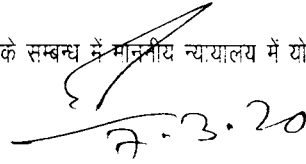 के सम्बन्ध में माननीय न्यायालय में यो
7.3.20